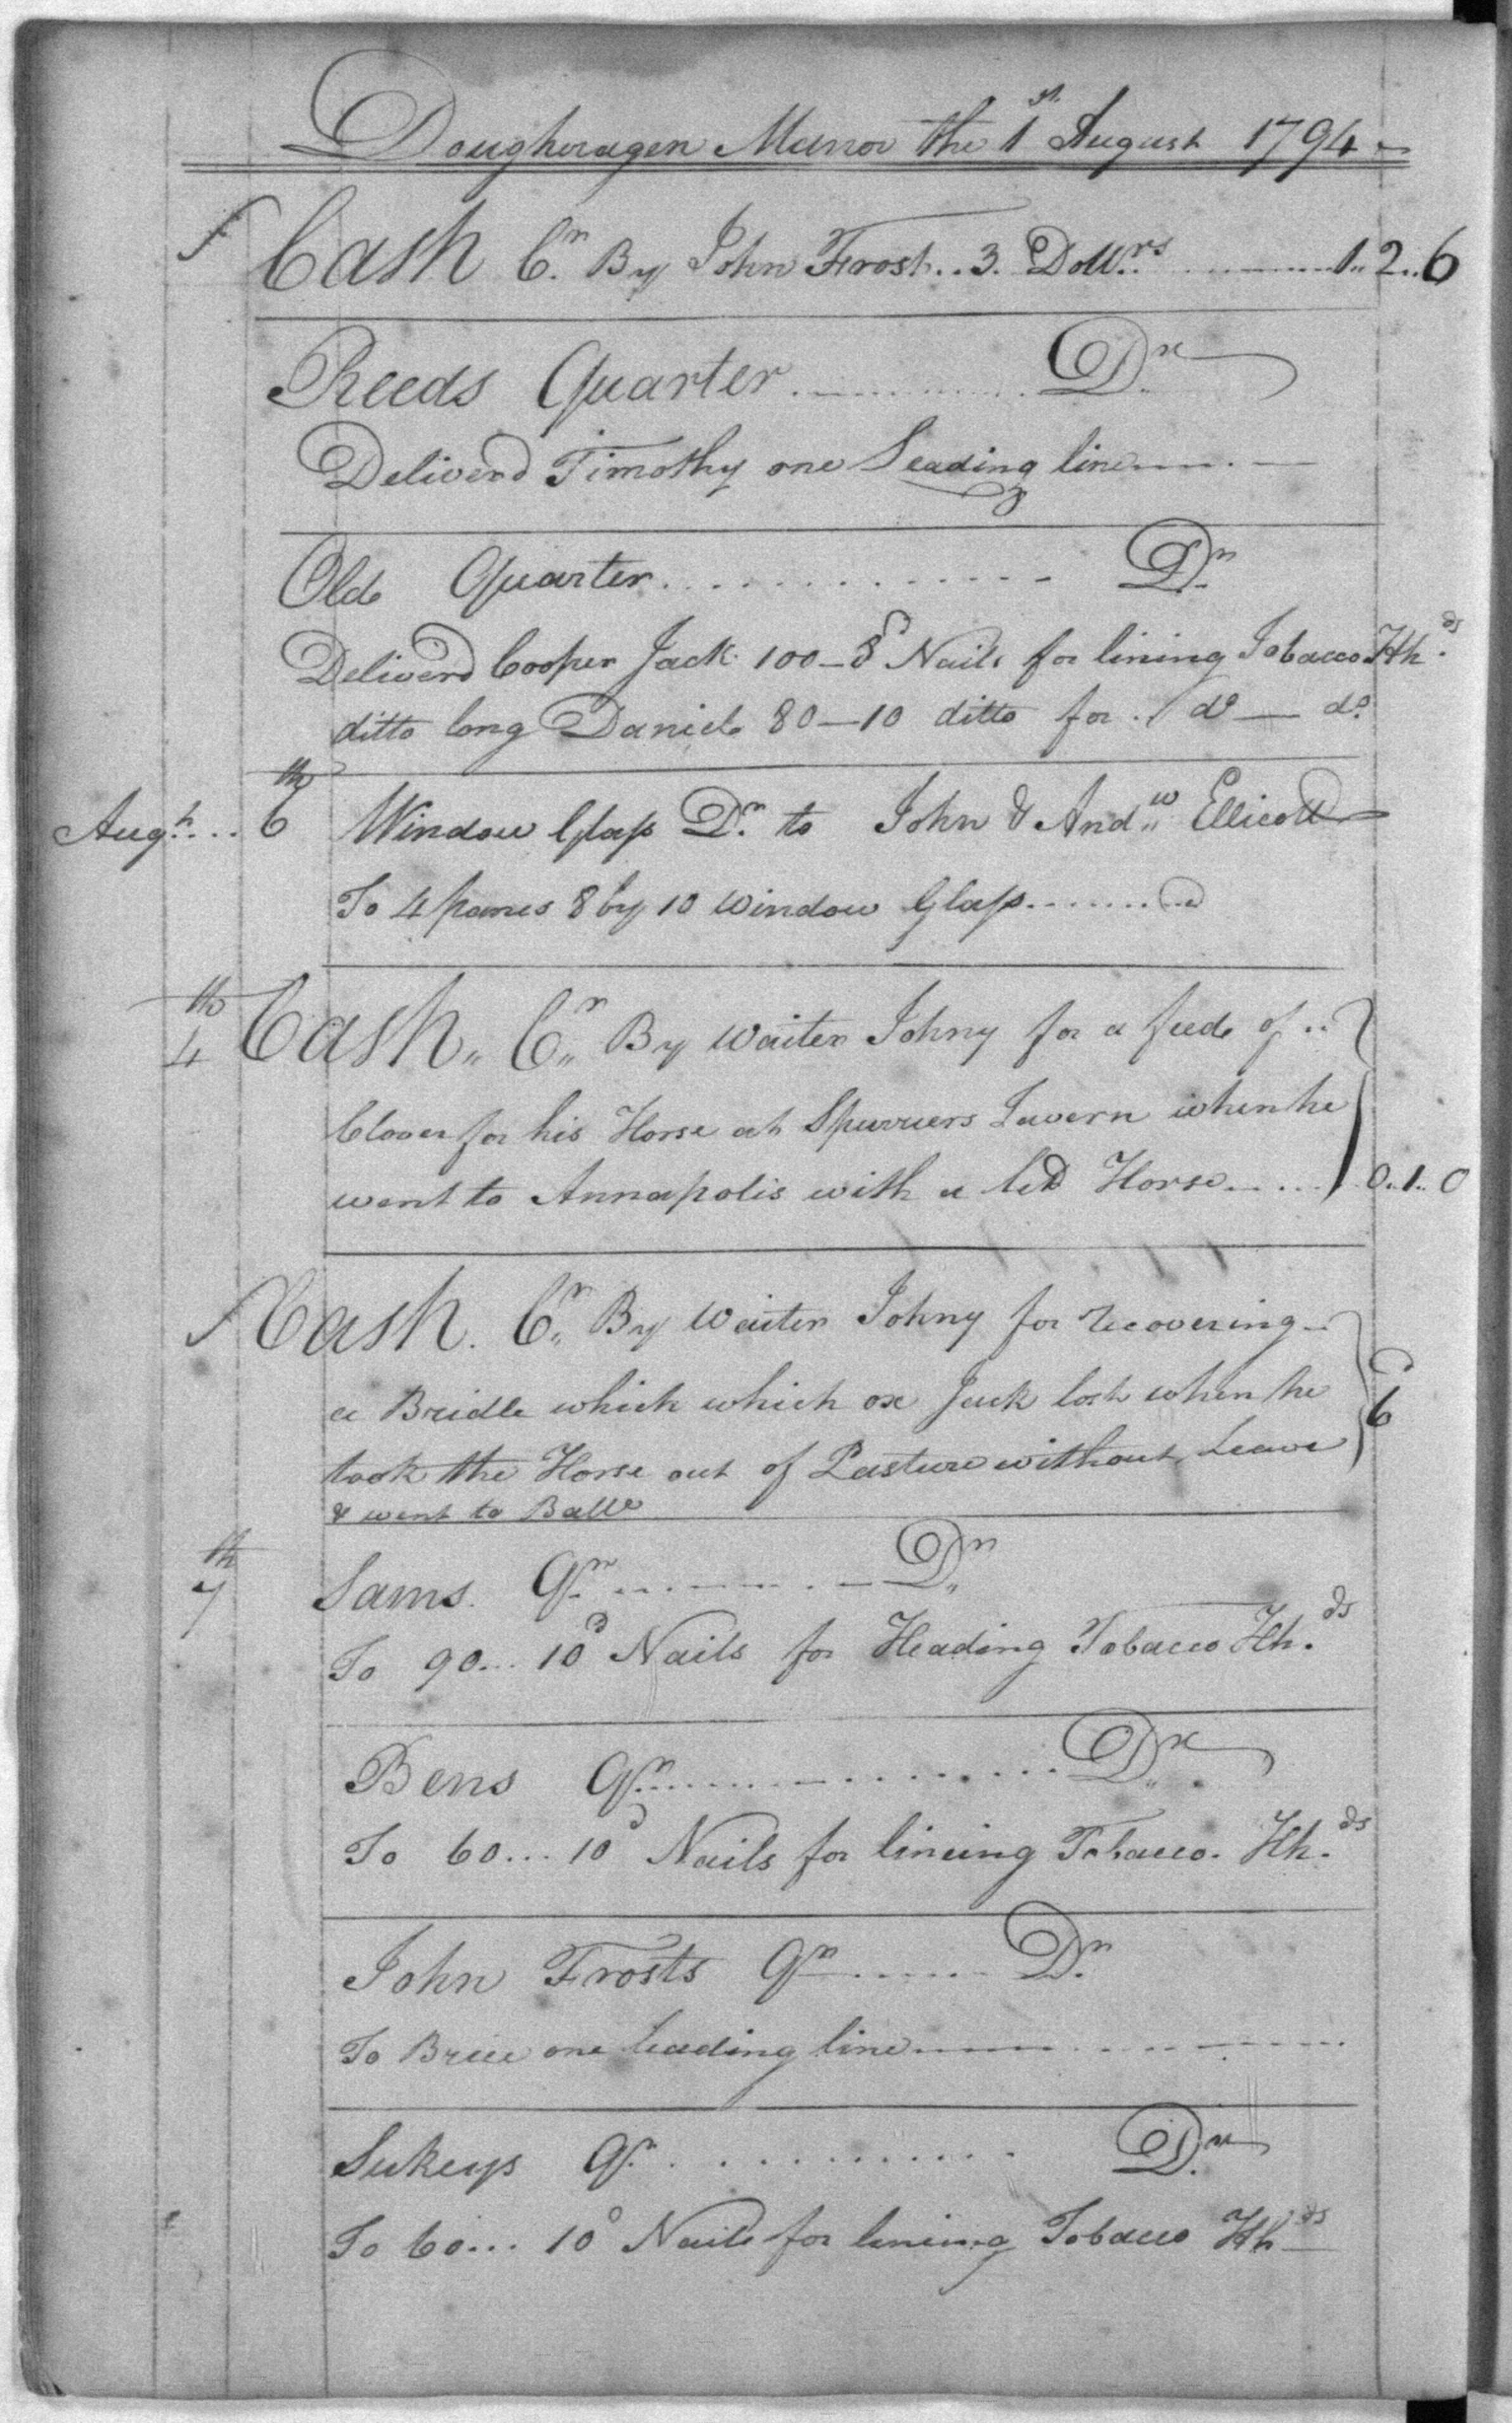 Doughoragen Manor the 1st August 1794
Cash Cr. By John Frost .. 3. Dollrs ........ 1..2..6
Reeds Quarter ........ Dr
Deliverd Timothy one Leading line
Old Quarter ........ Dr
Deliverd Cooper Jack 100 - 8d Nails for lining Tobacco Hhds
ditto long Daniel 80 - 10 ditto for do - do
Augt .. 6th Window Glass Dr. to John & Andw Ellicott
To 4 panes 8 by 10 window Glass ........
4th Cash Cr By waiter Johny for a feed of ..
Clover for his Horse at Spurriers Tavern when he
went to Annapolis with a led Horse ..... 0..1..0
Cash. Cr By waiter Johny for recovering
a Bridle which which ox Jack lost when he 6
took the Horse out of Pasture without Leave
& went to Balle
7th Sams. Qr ........ Dr
To 90 ... 10d Nails for Heading Tobacco Hhds
Bens Qr ........ Dr
To 60 ... 10d Nails for lineing Tobacco. Hhds
John Frosts Qr ...... Dr.
To Brice one leading line ........
Sukeys Qr ........ Dr.
To 60 ... 10d Nails for lineing Tobacco Hhds